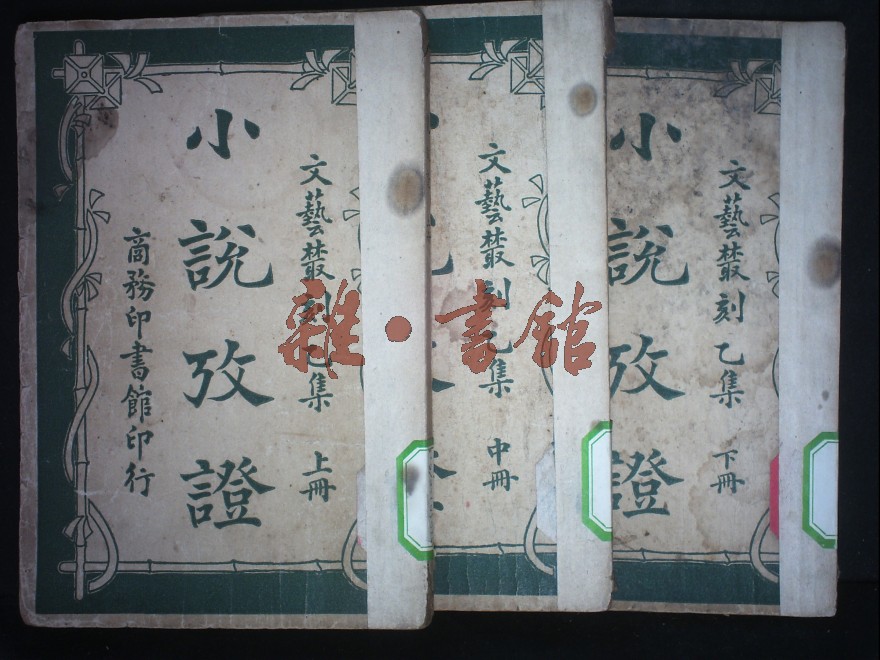 文藝叢刻乙集 上冊
小說攷證
商務印書館印行
文藝叢刻乙集 中冊
文藝叢刻乙集 下冊
小說攷證
雜·書館